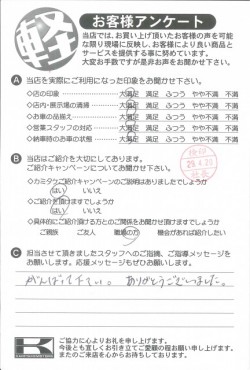 軽
お客様アンケート
当店では、お買い上げ頂いたお客様の声を可能
な限り現場に反映し、お客様により良い商品と
サービスを提供する事に努めています。
大変お手数ですが是非お声をお聞かせ下さい。
A 当店を実際にご利用になった印象をお聞かせ下さい。
◇店の印象 大満足 満足 ふつう やや不満 不満
◇店内・展示場の清掃 大満足 満足 ふつう やや不満 不満
◇お車の品揃え 大満足 満足 ふつう やや不満 不満
◇営業スタッフの対応 大満足 満足 ふつう やや不満 不満
◇納車時のお車の状態 大満足 満足 ふつう やや不満 不満
B 当店はご紹介を大切にしております。
ご紹介キャンペーンについてお聞かせ下さい。
◇カミタウご紹介キャンペーンのご説明はありましたでしょうか
はい いいえ
◇ご紹介を頂けますでしょうか
はい いいえ
◇具体的にご紹介頂ける方とのご関係をお聞かせ頂けますでしょうか
ご親族 ご友人 職場の方 機会があれば紹介したい
C 担当させて頂きましたスタッフへのご指摘、ご指導メッセージを
お願いします。応援メッセージもぜひお願いします。
がんばって下さい。 ありがとうございました。
K
ご協力に心よりお礼を申し上げます。
今後とも宜しくお引き立てご愛顧の程お願い申し上げます。
またのご来店を心からお待ちしております。